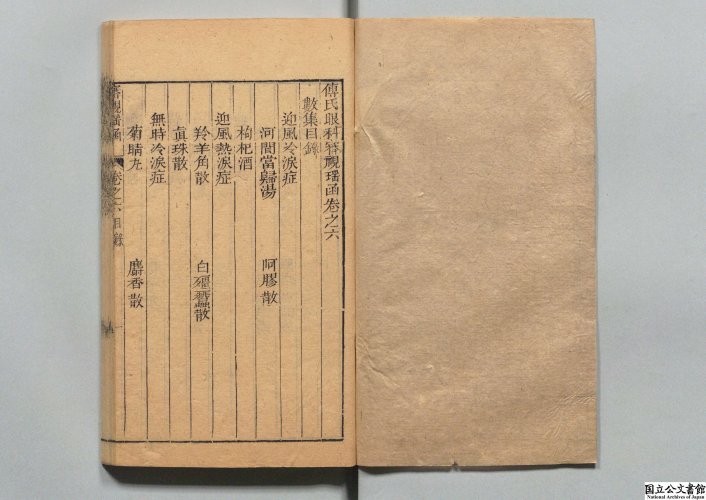 傅氏眼科審視瑶函卷之六
數集目錄
迎風冷淚症
河間當歸湯 阿膠散
枸杞酒
迎風熱淚症
羚羊角散 白殭蠶散
真珠散
無時冷淚症
菊睛丸 麝香散
審視瑶函 卷之六目錄 一
国立公文書館
National Archives of Japan